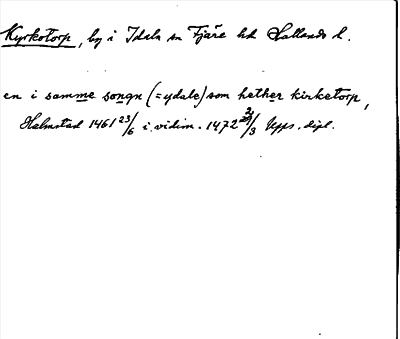 Kyrkotorp, by i Idala sn Fjäre hd Hallands l.
en i samme songn (= ydale) som hether kirketorp,
Halmstad 1461 23/6 i vidim. 1472 /3 Upps. dipl.